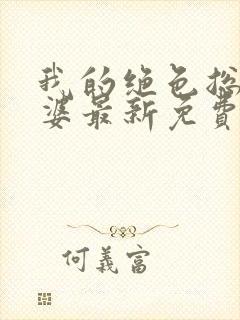 我的绝色总
婆最新免費
何義富